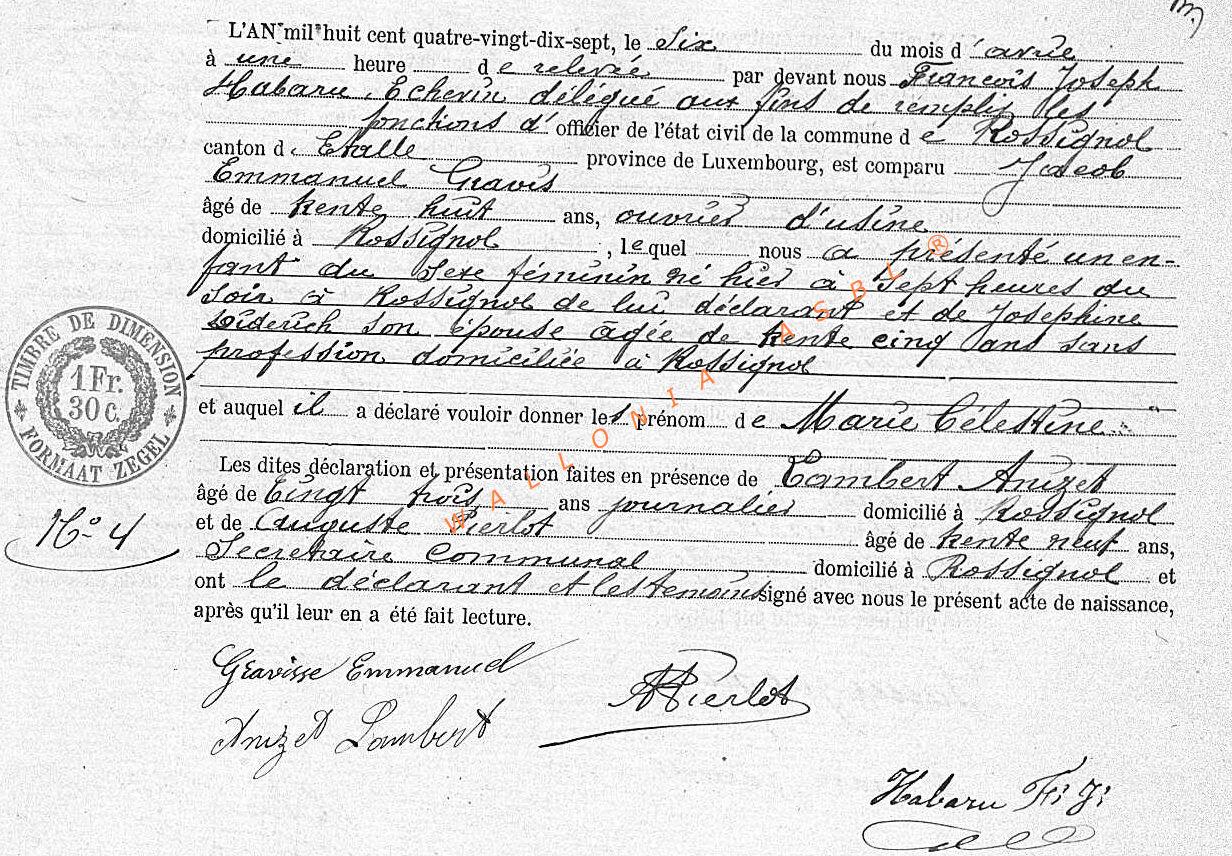 L'AN mil huit cent quatre-vingt-dix-sept, le six du mois d'avril
à une heure de relevée par devant nous François Joseph
Habaru, Echevin délégué aux fins de remplir les
fonctions d'officier de l'état civil de la commune de Rossignol
canton d'Etalle province de Luxembourg, est comparu Jacob
Emmanuel Gravis
âgé de trente huit ans, ouvrier d'usine
domicilié à Rossignol, lequel nous a présenté un en-
fant du sexe féminin né hier à sept heures du
soir à Rossignol de lui déclarant et de Joséphine
Diderich son épouse agée de trente cinq ans sans
profession domiciliée à Rossignol
et auquel il a déclaré vouloir donner les prénom de Marie Célestine
Les dites déclaration et présentation faites en présence de Lambert Anizet
âgé de vingt trois ans journalier domicilié à Rossignol
et de Auguste Pierlot âgé de trente neuf ans,
Secrétaire communal domicilié à Rossignol et
ont le déclarant et les temoins signé avec nous le présent acte de naissance,
après qu'il leur en a été fait lecture.
TIMBRE DE DIMENSION
1 Fr.
30 C.
FORMAAT ZEGEL
No 4
Gravisse Emmanuel
Anizet Lambert
A Pierlot
Habaru F. J.
WALLONIA ASBL ®